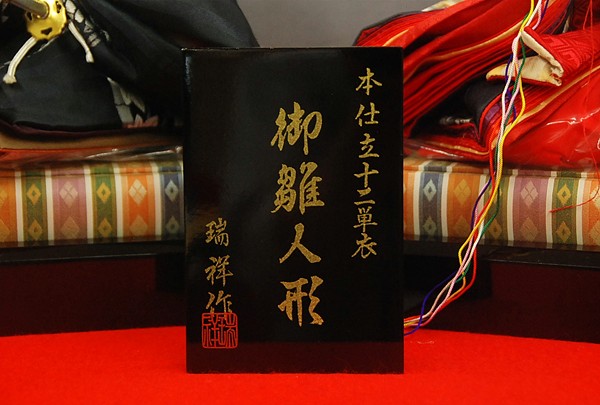 本仕立十二単衣
御雛人形
瑞祥作
瑞祥